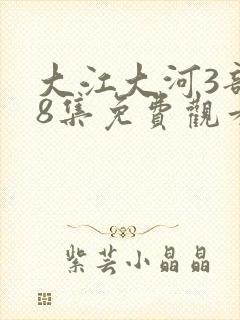 大江大河3部
8集免費觀看
紫芸小晶晶